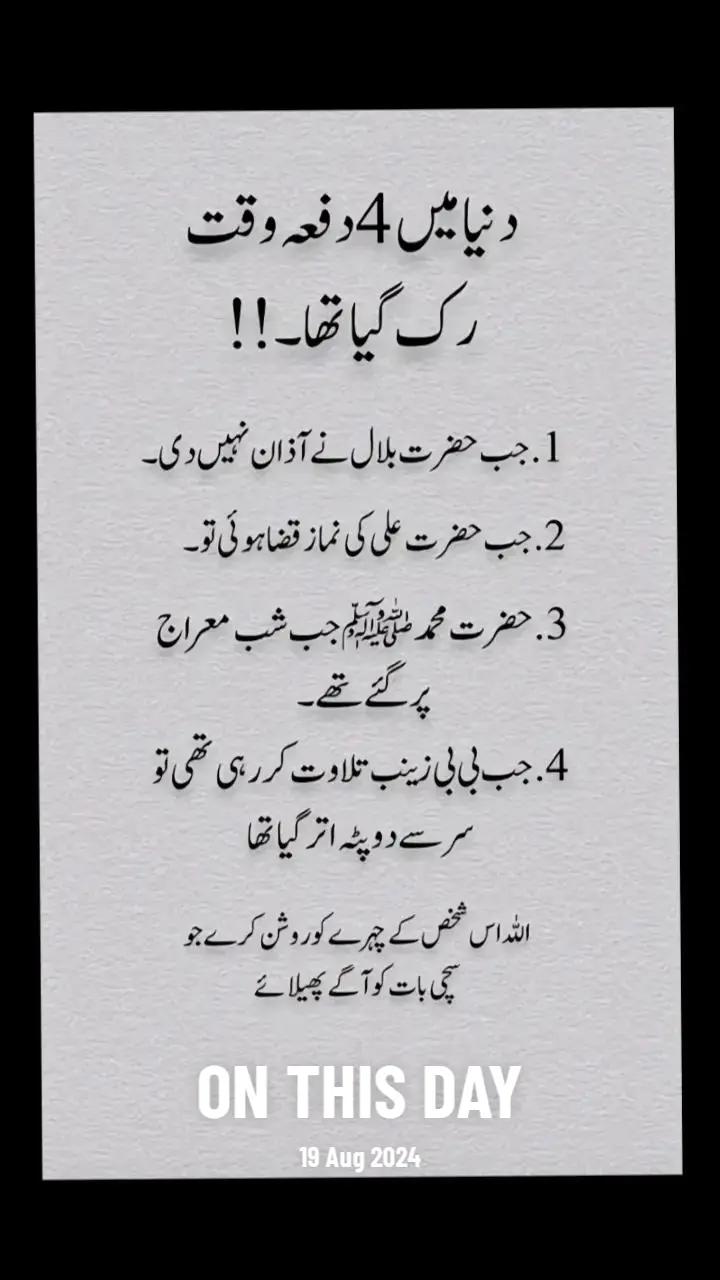 دنیا میں 4 دفعہ وقت
رک گیا تھا۔!!
1. جب حضرت بلال نے آذان نہیں دی۔
2. جب حضرت علی کی نماز قضا ہوئی تو۔
3. حضرت محمد ﷺ جب شب معراج
پر گئے تھے۔
4. جب بی بی زینب تلاوت کر رہی تھی تو
سر سے دوپٹہ اتر گیا تھا
اللہ اس شخص کے چہرے کو روشن کرے جو
سچی بات کو آگے پھیلائے
ON THIS DAY
19 Aug 2024